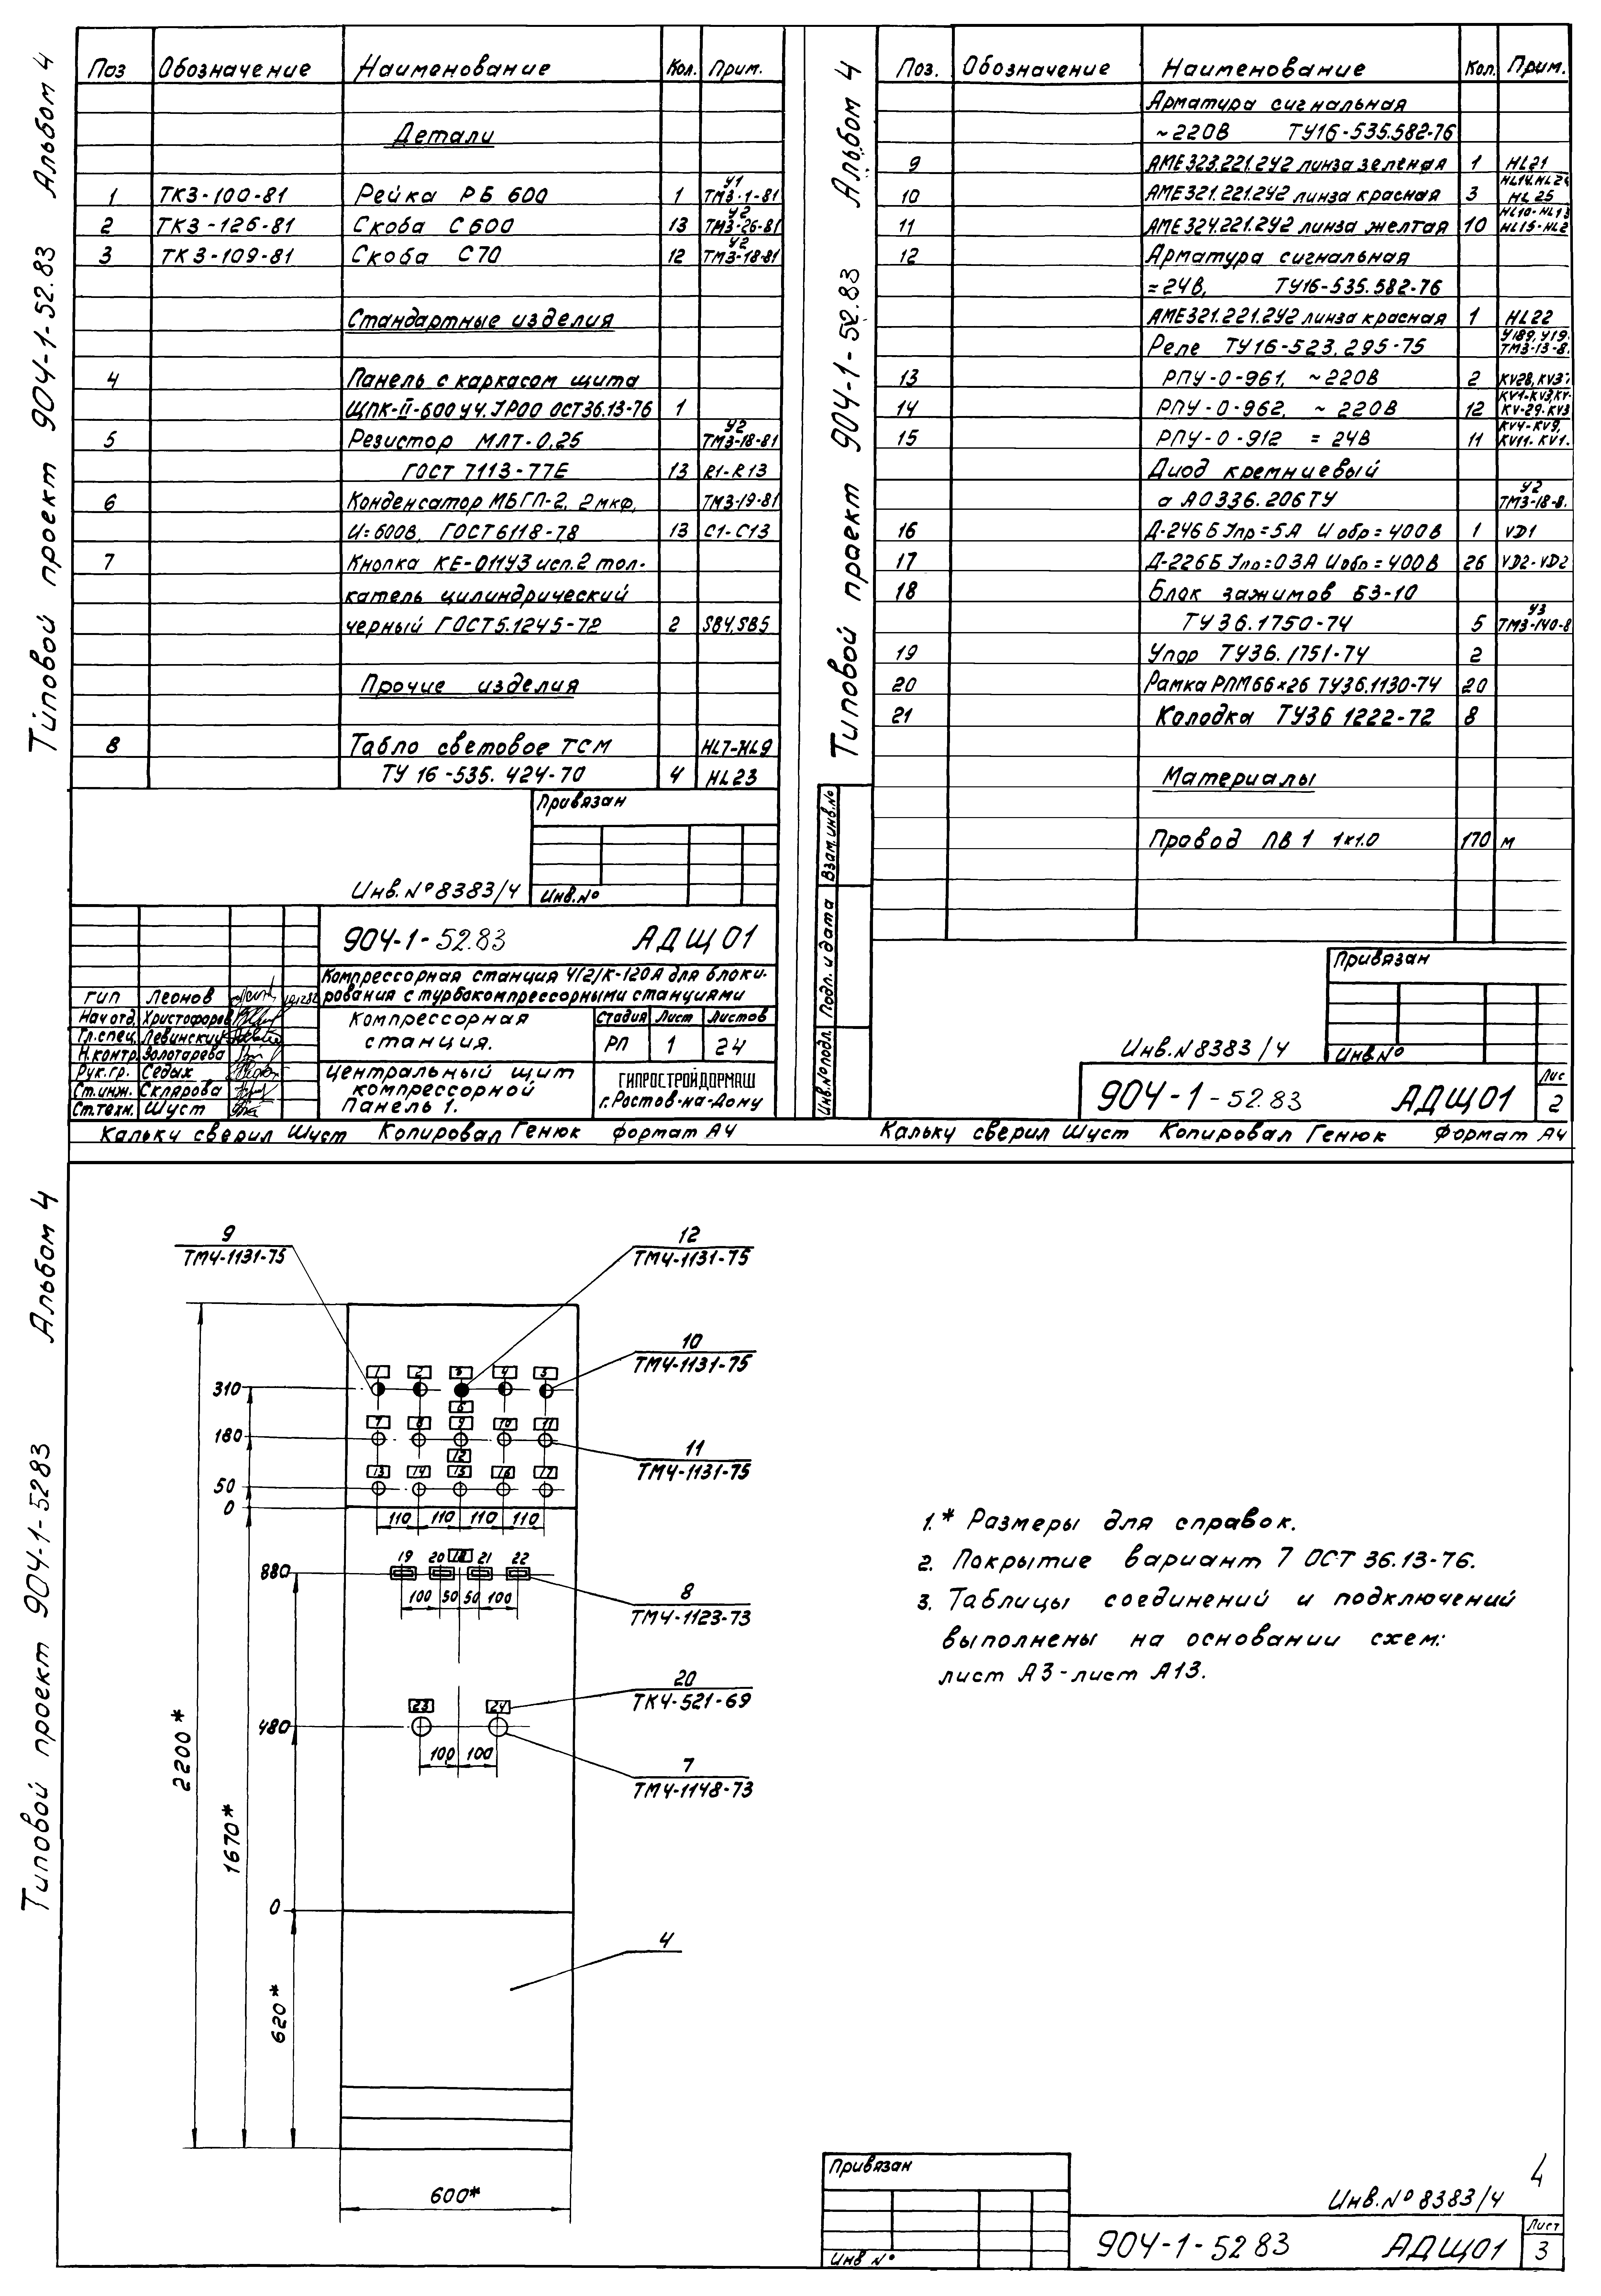 Типовой проект 904-1-52.83 Альбом 4
Поз Обозначение Наименование Кол. Прим.
Детали
1 ТК3-100-81 Рейка РБ 600 1 У1 ТМ3-1-81
2 ТК3-126-81 Скоба С600 13 У2 ТМ3-26-81
3 ТК3-109-81 Скоба С70 12 У2 ТМ3-18-81
Стандартные изделия
4 Панель с каркасом щита
ЩПК-II-600 УЧ. УР00 ОСТ36.13-76 1
5 Резистор МЛТ-0,25 У2 ТМ3-18-81
ГОСТ 7113-77Е 13 R1-R13
6 Конденсатор МБГП-2, 2мкф, ТМ3-19-81
U=600В, ГОСТ6118-78 13 С1-С13
7 Кнопка КЕ-011У3 исп.2 тол-
катель цилиндрический
черный ГОСТ5.1245-72 2 SB4,SB5
Прочие изделия
8 Табло световое ТСМ HL7-HL9
ТУ 16-535.424-70 4 HL23
Привязан
Инв.№8383/4 Инв.№
904-1-52.83 АДЩ01
Компрессорная станция 4(2)К-120А для блоки-
рования с турбокомпрессорными станциями
ГИП Леонов
Нач отд. Христофоров
Гл.спец. Левинский
Н.контр. Золотарева
Рук.гр. Седых
Ст.инж. Склярова
Ст.техн. Шуст
Компрессорная
станция.
Стадия Лист Листов
РП 1 24
Центральный щит
компрессорной
Панель 1.
ГИПРОСТРОЙДОРМАШ
г.Ростов-на-Дону
Кальку сверил Шуст Копировал Генюк формат А4
Типовой проект 904-1-52.83 Альбом 4
Поз. Обозначение Наименование Кол. Прим.
Арматура сигнальная
~220В ТУ16-535.582-76
9 АМЕ323.221.2У2 линза зеленая 1 HL21
10 АМЕ321.221.2У2 линза красная 3 HL14, HL24 HL25
11 АМЕ324.221.2У2 линза желтая 10 HL10-HL13 HL15-HL2
12 Арматура сигнальная
=24В, ТУ16-535.582-76
АМЕ321.221.2У2 линза красная 1 HL22
Реле ТУ16-523.295-75 У189, У19. ТМ3-13-8.
13 РПУ-0-961, ~220В 2 KV28, KV3
14 РПУ-0-962, ~220В 12 KV1-KV3, KV- KV-29. KV3
15 РПУ-0-912 =24В 11 KV4-KV9, KV11. KV1.
Диод кремниевый
аА0336.206ТУ У2 ТМ3-18-8.
16 Д-246Б Jпр=5А Uобр=400В 1 VD1
17 Д-226Б Jпр=03А Uобр=400В 26 VD2-VD2
18 Блок зажимов БЗ-10
ТУ36.1750-74 5 У3 ТМ3-140-8
19 Упор ТУ36.1751-74 2
20 Рамка РПМ66×26 ТУ36.1130-74 20
21 Колодка ТУ36 1222-72 8
Материалы
Провод ПВ1 1×1.0 170 м
Инв.№подл. Подп. и дата Взам.инв.№
Привязан
Инв.№8383/4 Инв.№
904-1-52.83 АДЩ01 Лис 2
Кальку сверил Шуст Копировал Генюк Формат А4
Типовой проект 904-1-5283 Альбом 4
9
ТМ4-1131-75
12
ТМ4-1131-75
10
ТМ4-1131-75
1 2 3 4 5
310
6
7 8 9 10 11
180
11
ТМ4-1131-75
12
13 14 15 16 17
50
0
110 110 110 110
19 20 18 21 22
880
100 50 50 100
8
ТМ4-1123-73
20
ТК4-521-69
23 24
480
100 100
7
ТМ4-1148-73
2200*
1670*
0
4
620*
600*
1.* Размеры для справок.
2. Покрытие вариант 7 ОСТ 36.13-76.
3. Таблицы соединений и подключений
выполнены на основании схем:
лист А3-лист А13.
Привязан
Инв №
4
Инв.№8383/4
904-1-5283 АДЩ01 Лист 3